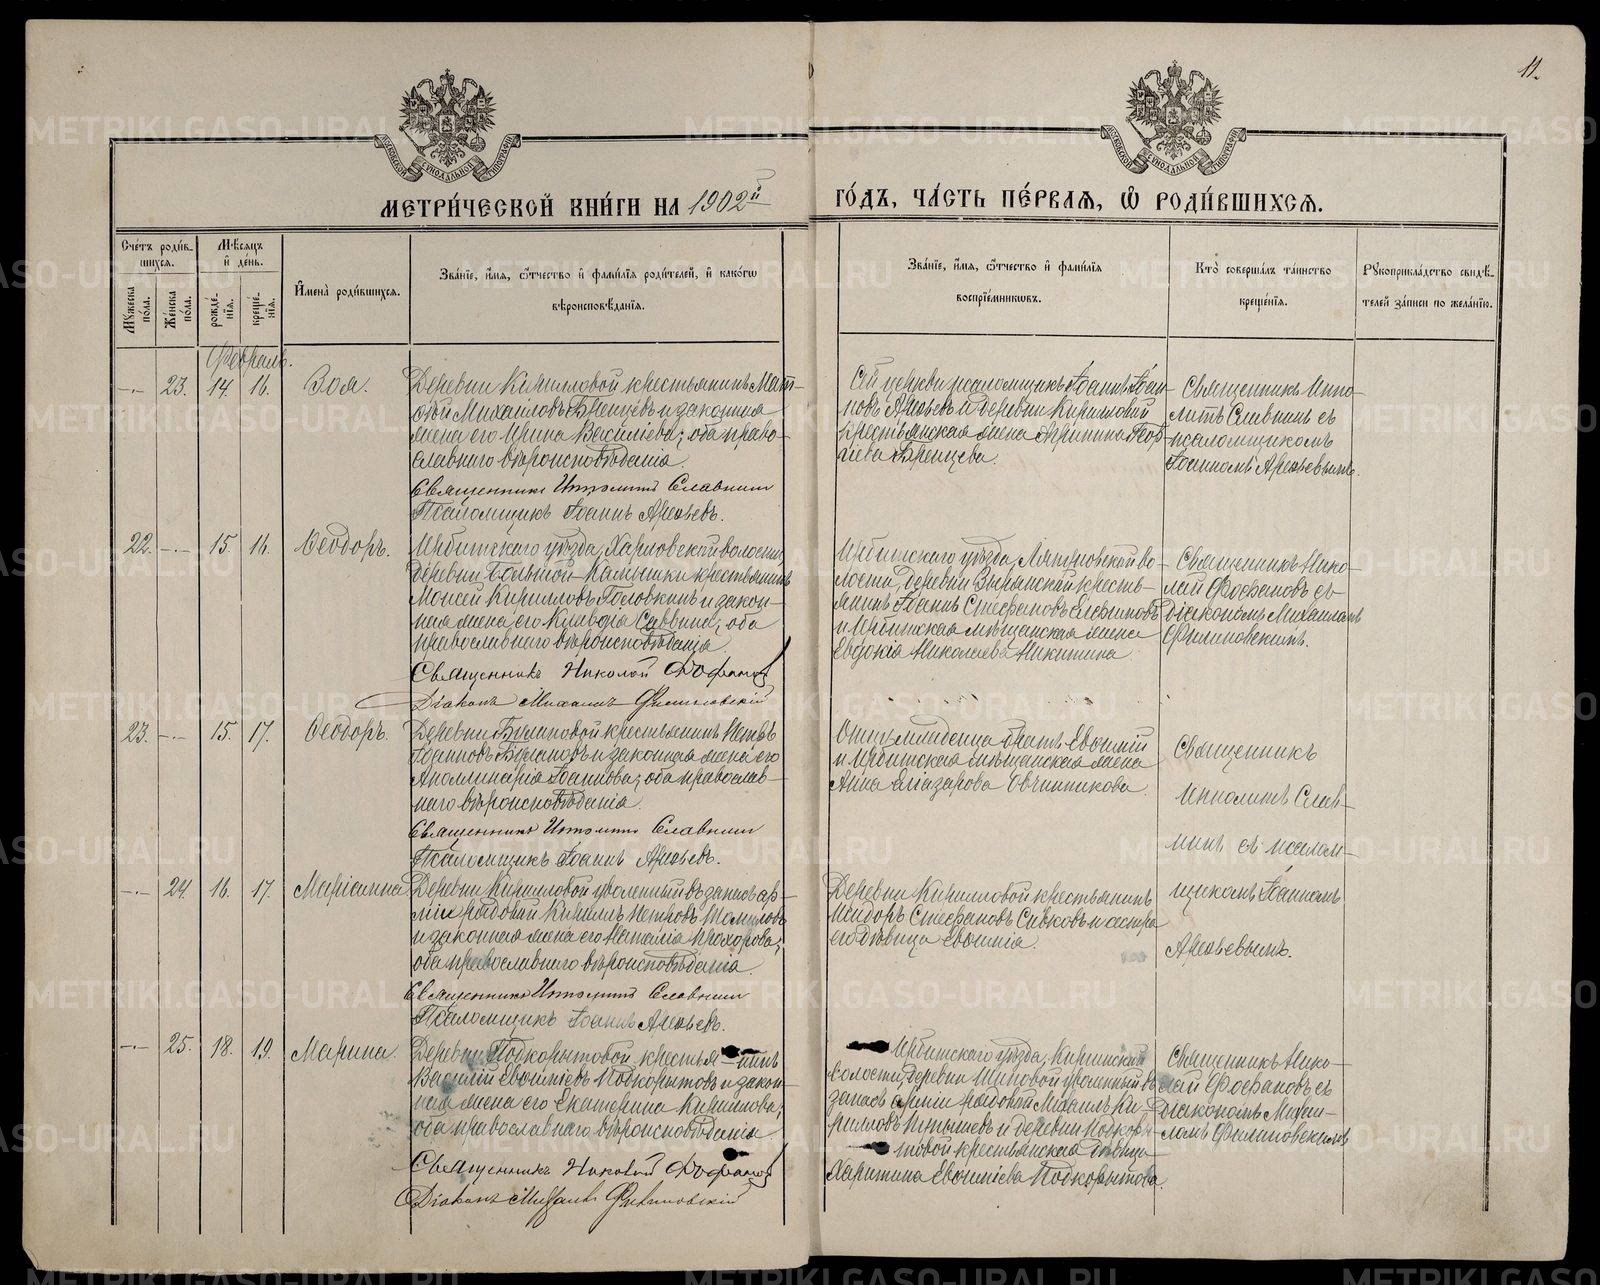 11.
МОСКОВСКОЙ СѴНОДАЛЬНОЙ ТИПОГРАФІИ
МОСКОВСКОЙ СѴНОДАЛЬНОЙ ТИПОГРАФІИ
МЕТРИ́ЧЕСКОЙ КНИ́ГИ НА 1902й ГО́ДЪ, ЧА́СТЬ ПЕ́РВАЯ, Ѿ РОДИ́ВШИХСЯ.
Сче́тъ роди́в-
шихся.
Му́жеска по́ла.
Же́нска по́ла.
Мѣ́сяцъ
и҆ де́нь.
рожде́-
нїя.
креще́-
нїя.
И҆мена̀ роди́вшихся.
Зва́нїе, и҆́мя, ѻ҆́тчество и҆ фами́лїя роди́телей, и҆ како́гѡ
вѣроисповѣ́данїя.
Зва́нїе, и҆́мя, ѻ҆́тчество и҆ фами́лїя
воспрїе́мниковъ.
Кто̀ соверша́лъ та́инство
креще́нїя.
Рꙋкоприкла́дство свидѣ́-
телей за́писи по жела́нїю.
Февраль.
-.- 23. 14. 16. Зоя.
Деревни Кирилловой крестьянинъ Мат-
ѳей Михайловъ Бренцевъ и законная
жена его Ирина Василіева; оба право-
славнаго вѣроисповѣданія.
Священникъ Ипполитъ Славнин
Псаломщикъ Іоаннъ Арефьевъ.
Сей церкви псаломщикъ Іоаннъ Іоан-
новъ Арефьевъ и деревни Кирилловой
крестьянская жена Агрипина Геор-
гіева Бренцева.
Священникъ Иппо-
литъ Славнинъ съ
псаломщикомъ
Іоанномъ Арефьевымъ.
22. -.- 15. 16. Ѳеодоръ.
Ирбитскаго уѣзда, Харловской волости,
деревни Большой-Камышки крестьянинъ
Моисей Кирилловъ Головкинъ и закон-
ная жена его Клавдія Саввина; оба
православнаго вѣроисповѣданія.
Священникъ Николай Фофановъ
Діаконъ Михаилъ Филиповскій
Ирбитскаго уѣзда, во-
лости, деревни Зырянской кресть-
янинъ Іоаннъ Стефановъ Елфимовъ
и Ирбитская мѣщанская жена
Евдокія Николаева Никитина
Священникъ Нико-
лай Фофановъ съ
діакономъ Михаиломъ
Филиповскимъ.
23. -.- 15. 17. Ѳеодоръ.
Деревни крестьянинъ Петръ
Іоанновъ и законная жена его
Аполлинарія Іоаннова; оба православ-
наго вѣроисповѣданія.
Священникъ Ипполитъ Славнин
Псаломщикъ Іоаннъ Арефьевъ.
Отцу младенца братъ Евѳимій
и Ирбитская мѣщанская жена
Анна Елазарова Овчинникова.
Священникъ
Ипполитъ Слав-
нинъ съ псалом-
щикомъ Іоанномъ
Арефьевымъ.
-.- 24. 16. 17. Маріамна
Деревни Кирилловой уволенный въ запасъ ар-
міи рядовой Кириллъ Петровъ Томиловъ
и законная жена его Наталія Прохорова;
оба православнаго вѣроисповѣданія.
Священникъ Ипполитъ Славнин
Псаломщикъ Іоаннъ Арефьевъ.
Деревни Кирилловой крестьянинъ
Исидоръ Стефановъ Сивковъ и сестра
его дѣвица Евѳимія.
-.- 25. 18. 19. Марина.
Деревни Подкорытовой крестья-нинъ
Василій Евѳиміевъ Подкорытовъ и закон-
ная жена его Екатерина Кириллова;
оба православнаго вѣроисповѣданія.
Священникъ Николай Фофановъ
Діаконъ Михаилъ Филиповскій
Ирбитскаго уѣзда, Киргинской
волости, деревни Шиповой уволенный въ
запасъ арміи рядовой Михаилъ Ки-
рилловъ и деревни Подкоры-
товой крестьянская дѣвица
Харитина Евѳиміева Подкорытова.
Священникъ Нико-
лай Фофановъ съ
діакономъ Михаи-
ломъ Филиповскимъ